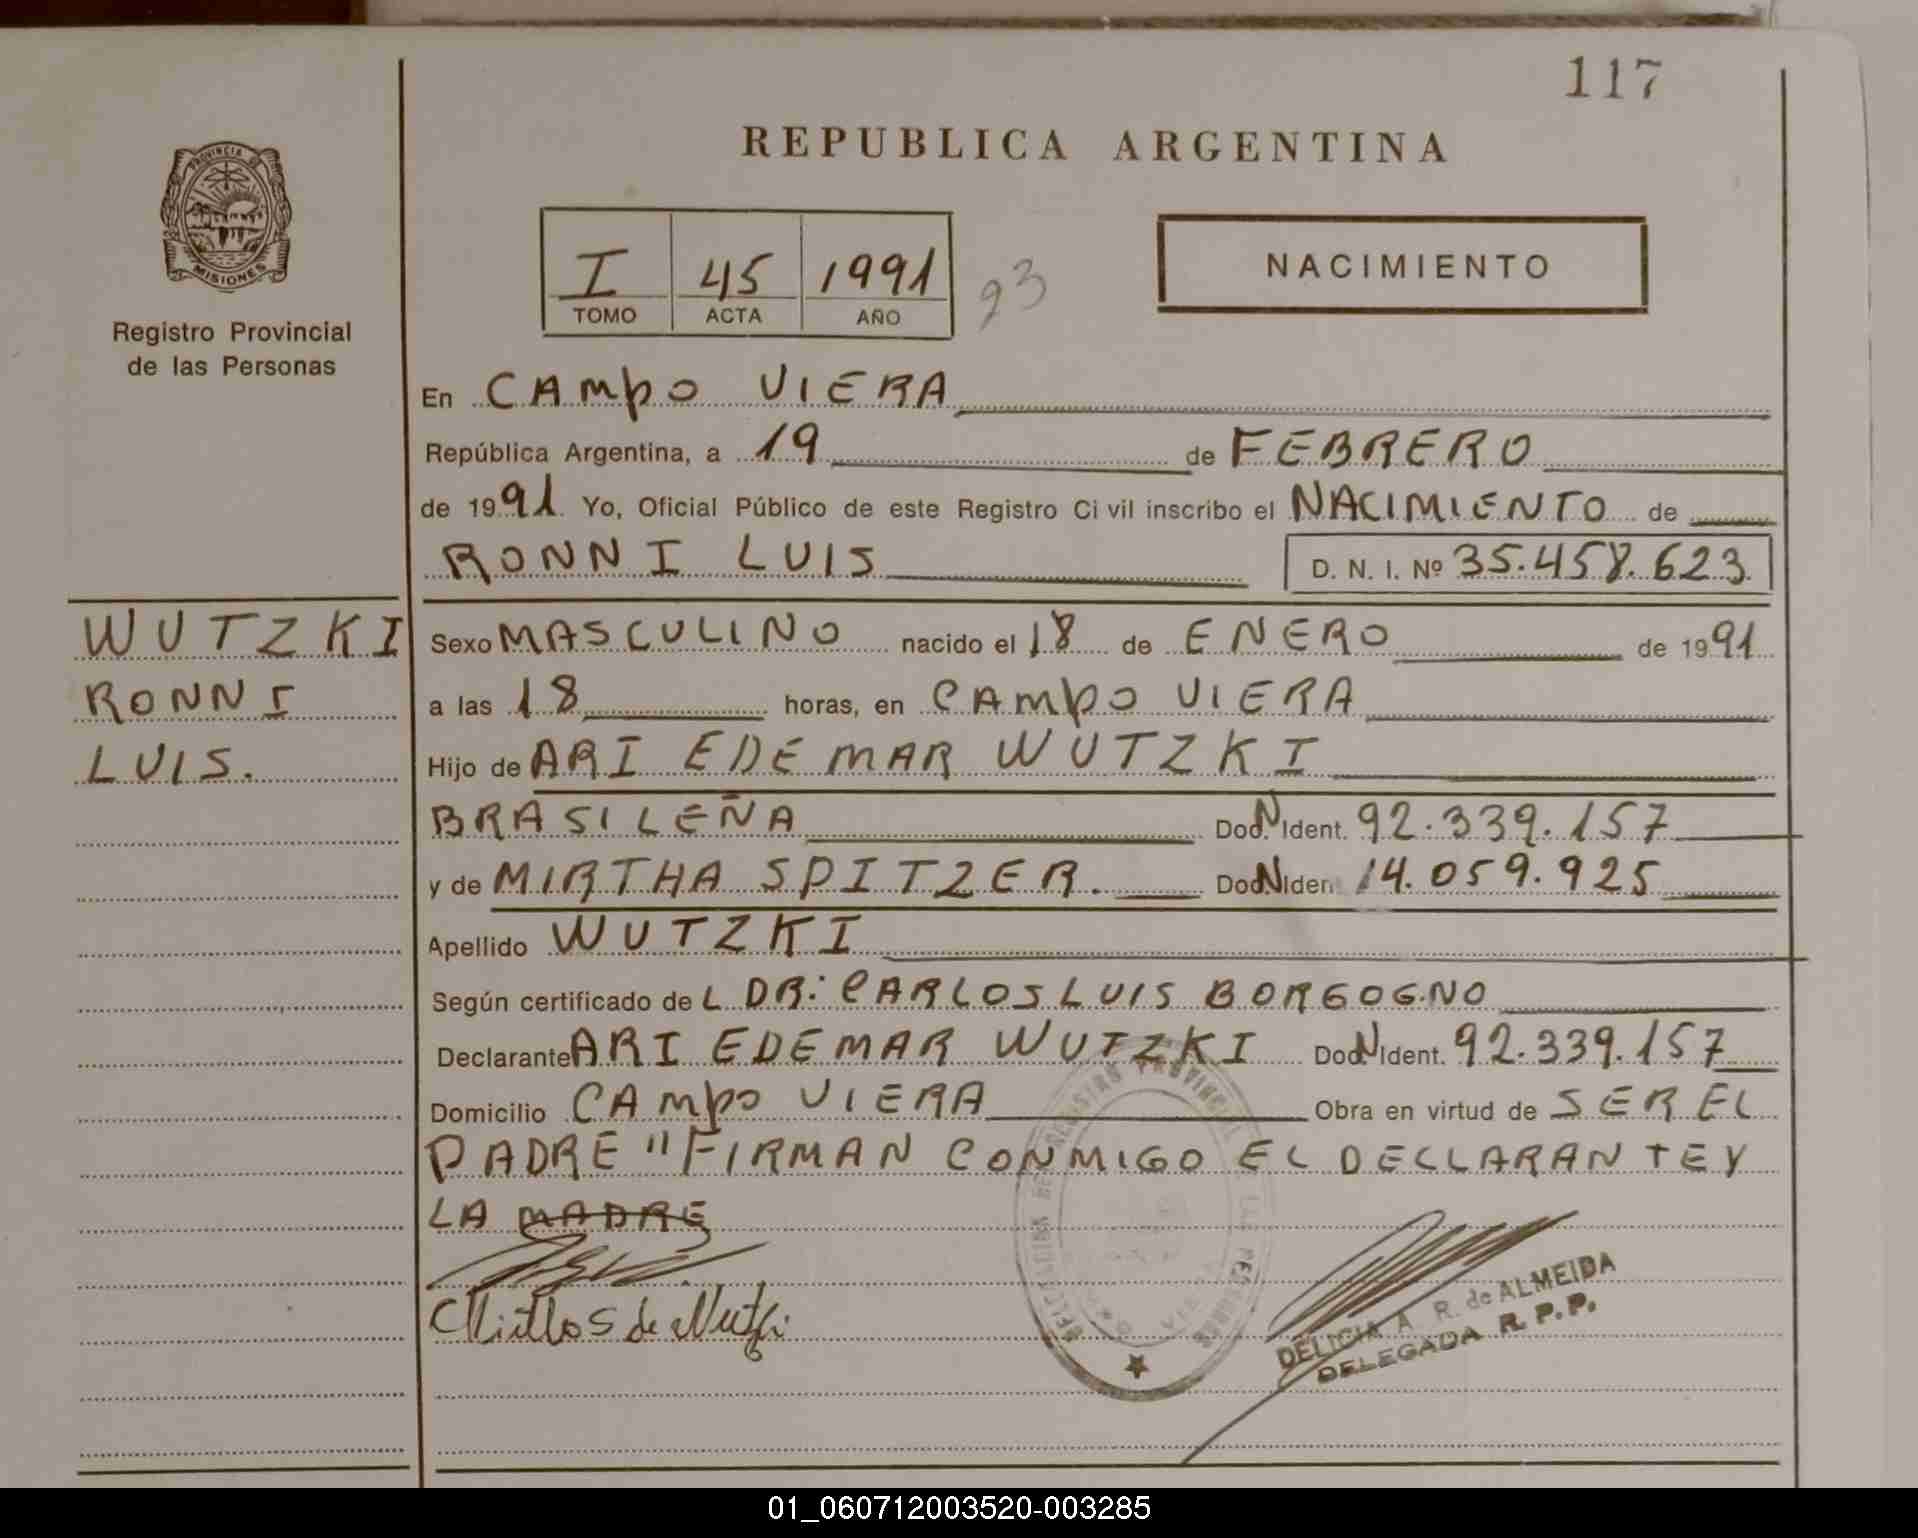 117
REPUBLICA ARGENTINA
PROVINCIA DE
MISIONES
Registro Provincial
de las Personas
I 45 1991 93
TOMO ACTA AÑO
NACIMIENTO
En CAMPO VIERA
República Argentina, a 19 de FEBRERO
de 1991 Yo, Oficial Público de este Registro Civil inscribo el NACIMIENTO de
RONNI LUIS D. N. I. Nº 35.458.623
WUTZKI
RONNI
LUIS.
Sexo MASCULINO nacido el 18 de ENERO de 1991
a las 18 horas, en CAMPO VIERA
Hijo de ARI EDEMAR WUTZKI
BRASILEÑA Doc. N Ident. 92.339.157
y de MIRTHA SPITZER. Doc. N Iden 14.059.925
Apellido WUTZKI
Según certificado de L DR: CARLOS LUIS BORGOGNO
Declarante ARI EDEMAR WUTZKI Doc. N Ident. 92.339.157
Domicilio CAMPO VIERA Obra en virtud de SER EL
PADRE "FIRMAN CONMIGO EL DECLARANTE Y
LA MADRE
DELICIA A. R. de ALMEIDA
DELEGADA R. P. P.
01_060712003520-003285